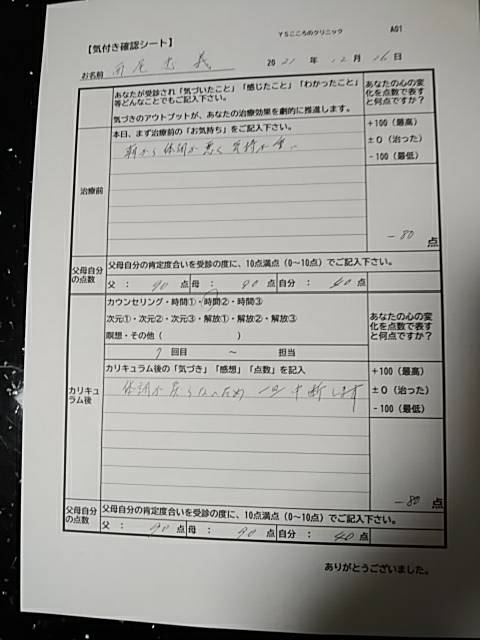 YSこころのクリニック A01
【気付き確認シート】
お名前 2021 年 12 月 16 日
あなたが受診され「気づいたこと」「感じたこと」「わかったこと」
等どんなことでもご記入下さい。
気づきのアウトプットが、あなたの治療効果を劇的に推進します。
あなたの心の変
化を点数で表す
と何点ですか?
治療前
本日、まず治療前の「お気持ち」をご記入下さい。
朝から体調が悪く気持が重い
+100(最高)
±0(治った)
-100(最低)
-80 点
父母自分
の点数
父母自分の肯定度合いを受診の度に、10点満点(0~10点)でご記入下さい。
父: 90 点 母: 90 点 自分: 40 点
カリキュ
ラム後
カウンセリング・時間①・時間②・時間③
次元①・次元②・次元③・解放①・解放②・解放③
瞑想・その他( )
7 回目 ~ 担当
あなたの心の変
化を点数で表す
と何点ですか?
カリキュラム後の「気づき」「感想」「点数」を記入
体調が戻らないため 一旦中断します
+100(最高)
±0(治った)
-100(最低)
-80 点
父母自分
の点数
父母自分の肯定度合いを受診の度に、10点満点(0~10点)でご記入下さい。
父: 90 点 母: 90 点 自分: 40 点
ありがとうございました。